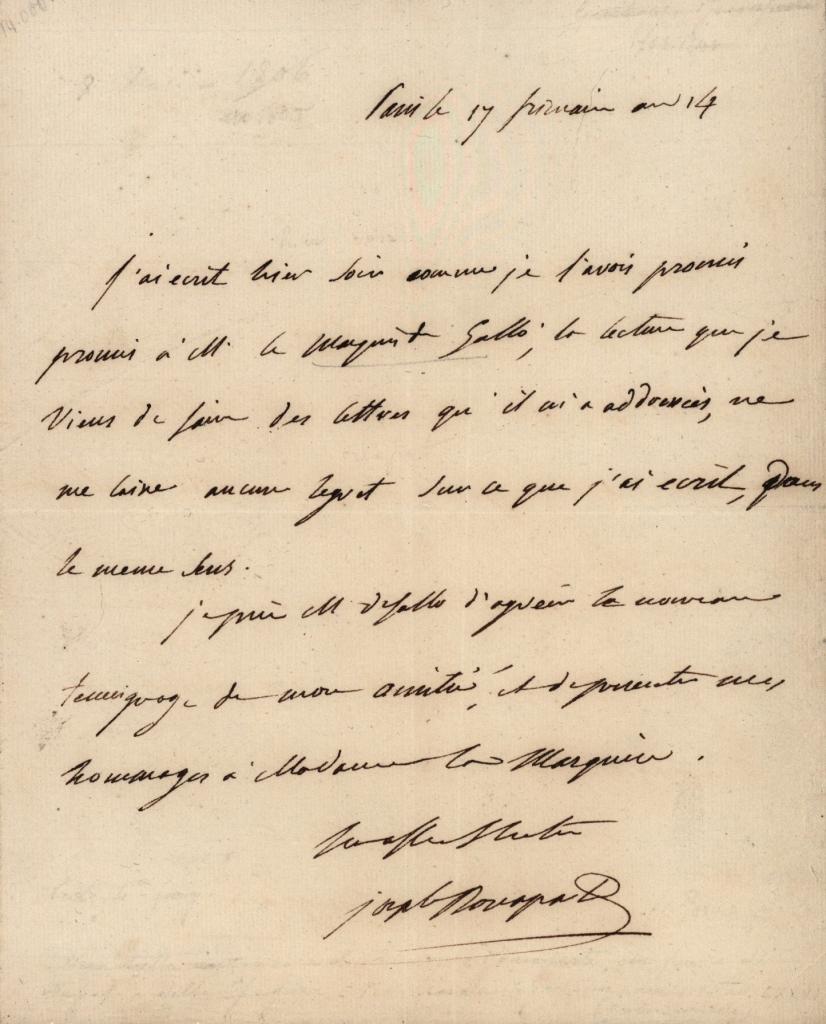 Paris le 17 frimaire an 14
j'ai ecrit hier soir comme je l'avois promis
promis à M. le Marquis de Gallo, la lecture que je
viens de faire des lettres qu'il m'a addressées, ne
me laisse aucun regret sur ce que j'ai ecrit, dans
le meme sens.
je prie M de Gallo d'agréer le nouveau
temoignage de mon amitié, et de presenter mes
hommages à Madame la Marquise.
joseph Bonaparte